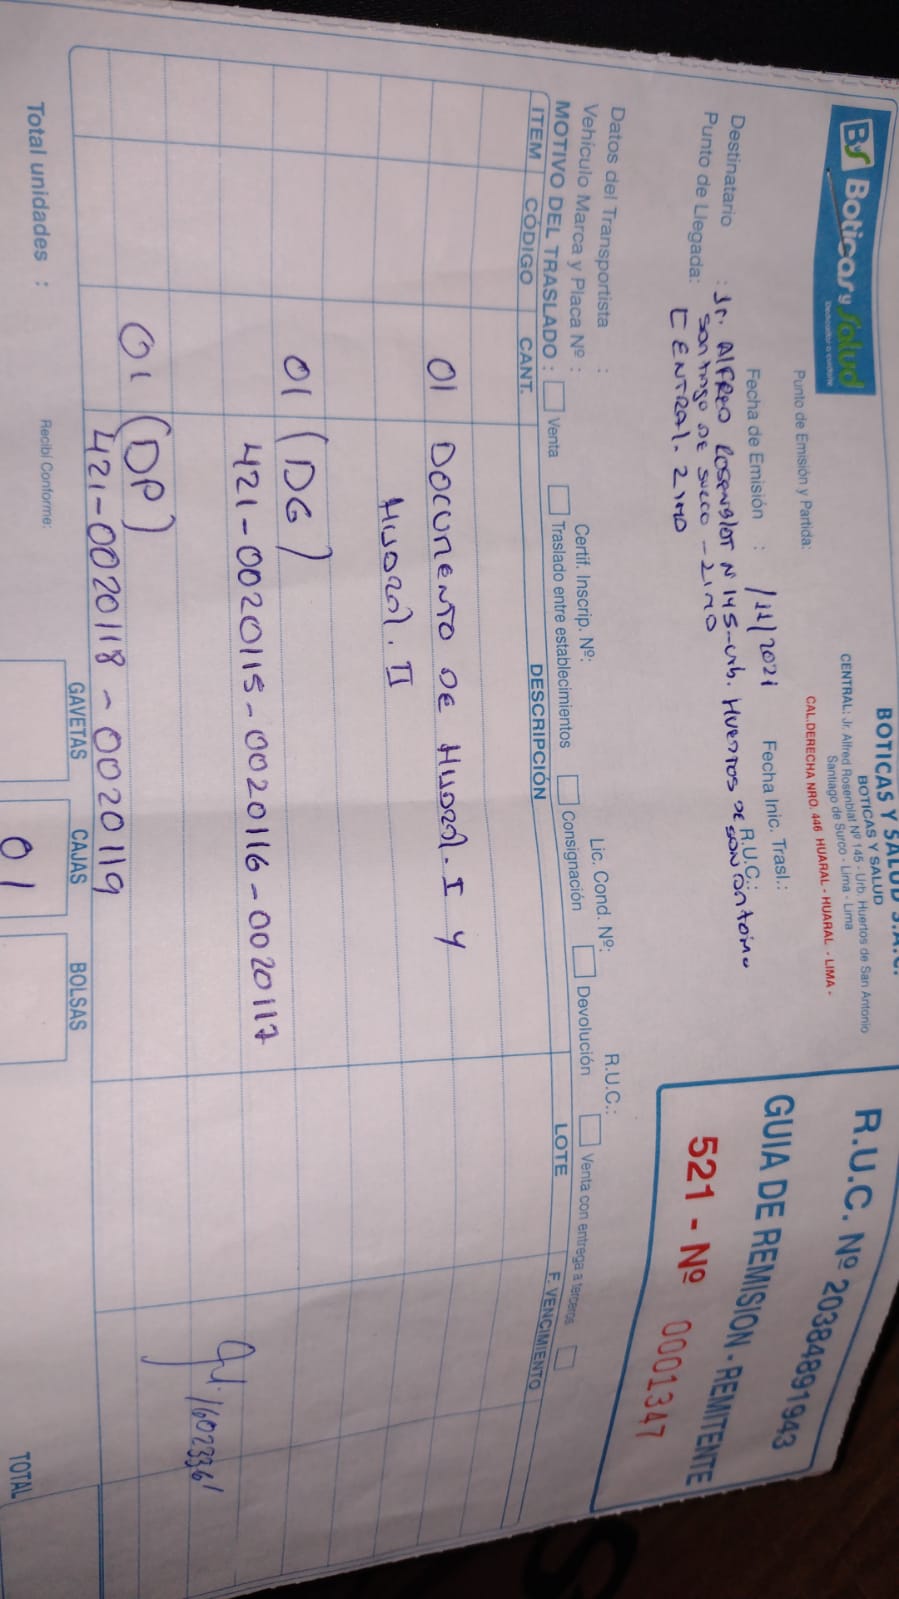 BS Boticas y Salud
BOTICAS Y SALUD S.A.C.
BOTICAS Y SALUD
CENTRAL: Jr. Alfred Rosenblat Nº 145 - Urb. Huertos de San Antonio
Santiago de Surco - Lima - Lima
CAL.DERECHA NRO. 446 HUARAL - HUARAL - LIMA -
R.U.C. Nº 20384891943
GUIA DE REMISION - REMITENTE
521 - Nº 0001347
Punto de Emisión y Partida:
Fecha de Emisión : /11/2021 Fecha Inic. Trasl.:
Destinatario : Jr. ALFREO ROSENBLOT N 145-Urb. HUERTOS DE SAN ANTONIO R.U.C.:
Punto de Llegada: SANTIAGO DE SURCO - LIMA
CENTRAL. LIMA
Datos del Transportista :
Certif. Inscrip. Nº: Lic. Cond. Nº: R.U.C.:
Vehículo Marca y Placa Nº :
MOTIVO DEL TRASLADO : Venta Traslado entre establecimientos Consignación Devolución Venta con entrega a terceros
ITEM CÓDIGO CANT. DESCRIPCIÓN LOTE F. VENCIMIENTO
01 DOCUMENTO DE HUARAL. I Y
HUARAL. II
01 (DG)
421-0020115-0020116-0020117
01 (DP)
421-0020118-0020119
16023361
GAVETAS CAJAS BOLSAS
01
Total unidades :
Recibí Conforme:
TOTAL